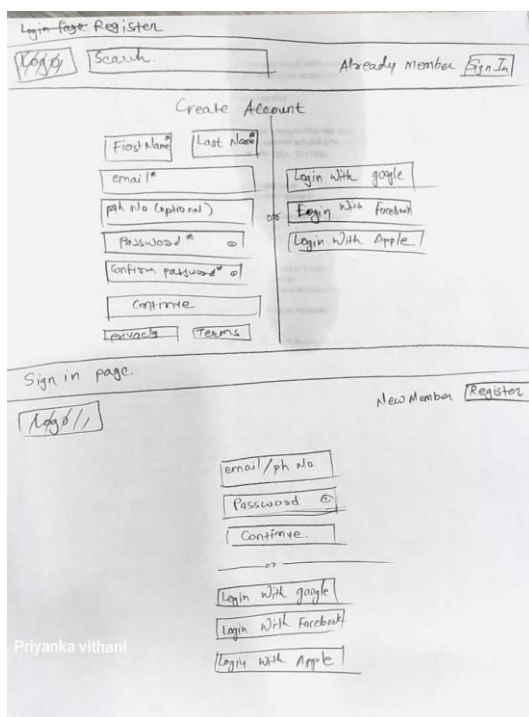 Login Page Register
Logo Search. Already member Sign In
Create Account
First Name* Last Name*
email*
ph No (optional)
Password*
Confirm password*
Continue
privacy Terms
or
Login With google
Login With Facebook
Login With Apple
Sign in page.
Logo New Member Register
email/ph No.
Password
Continue.
or
Login With google
Login With Facebook
Login With Apple
Priyanka vithani